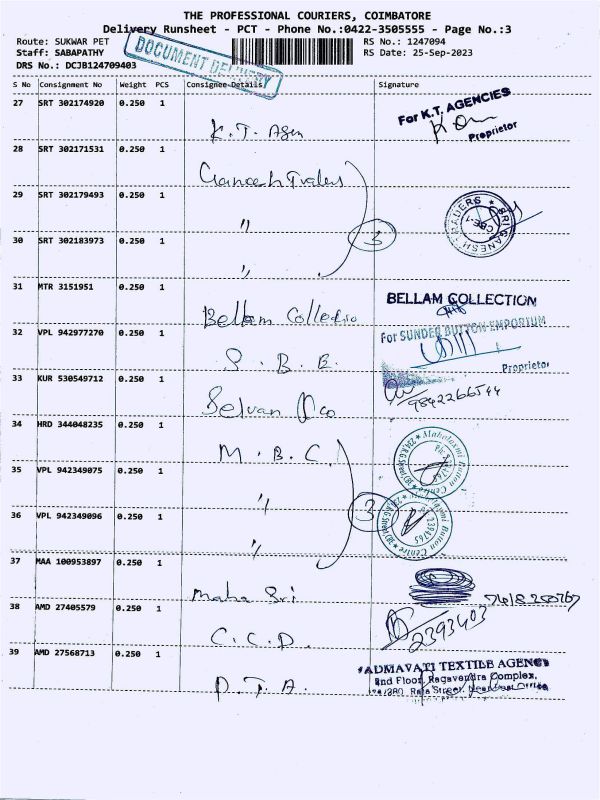 THE PROFESSIONAL COURIERS, COIMBATORE
Delivery Runsheet - PCT - Phone No.:0422-3505555 - Page No.:3
Route: SUKWAR PET
RS No.: 1247094
Staff: SABAPATHY
RS Date: 25-Sep-2023
DRS No.: DCJB124709403
DOCUMENT DELIVERY
S No Consignment No Weight PCS Consignee Details Signature
27 SRT 302174920 0.250 1
K.T. Agen
For K.T. AGENCIES
Proprietor
28 SRT 302171531 0.250 1
Ganesh Traders
29 SRT 302179493 0.250 1
"
3
SRI GANESH TRADERS
CBE-1
30 SRT 302183973 0.250 1
"
31 MTR 3151951 0.250 1
Bellam Collectio
BELLAM COLLECTION
32 VPL 942977270 0.250 1
S. B. E.
For SUNDER BUTTON EMPORIUM
Proprietor
33 KUR 530549712 0.250 1
Selvan
9842266544
34 HRD 344048235 0.250 1
M. B. C.
Mahalaxmi Button Centre
35 VPL 942349075 0.250 1
"
3
36 VPL 942349096 0.250 1
"
Button Centre
2394765
37 MAA 100953897 0.250 1
Maha Sri
38 AMD 27405579 0.250 1
C.C.D.
2393403
39 AMD 27568713 0.250 1
P.T.A.
PADMAVATI TEXTILE AGENCY
2nd Floor, Ragavendra Complex,
Raja Street,